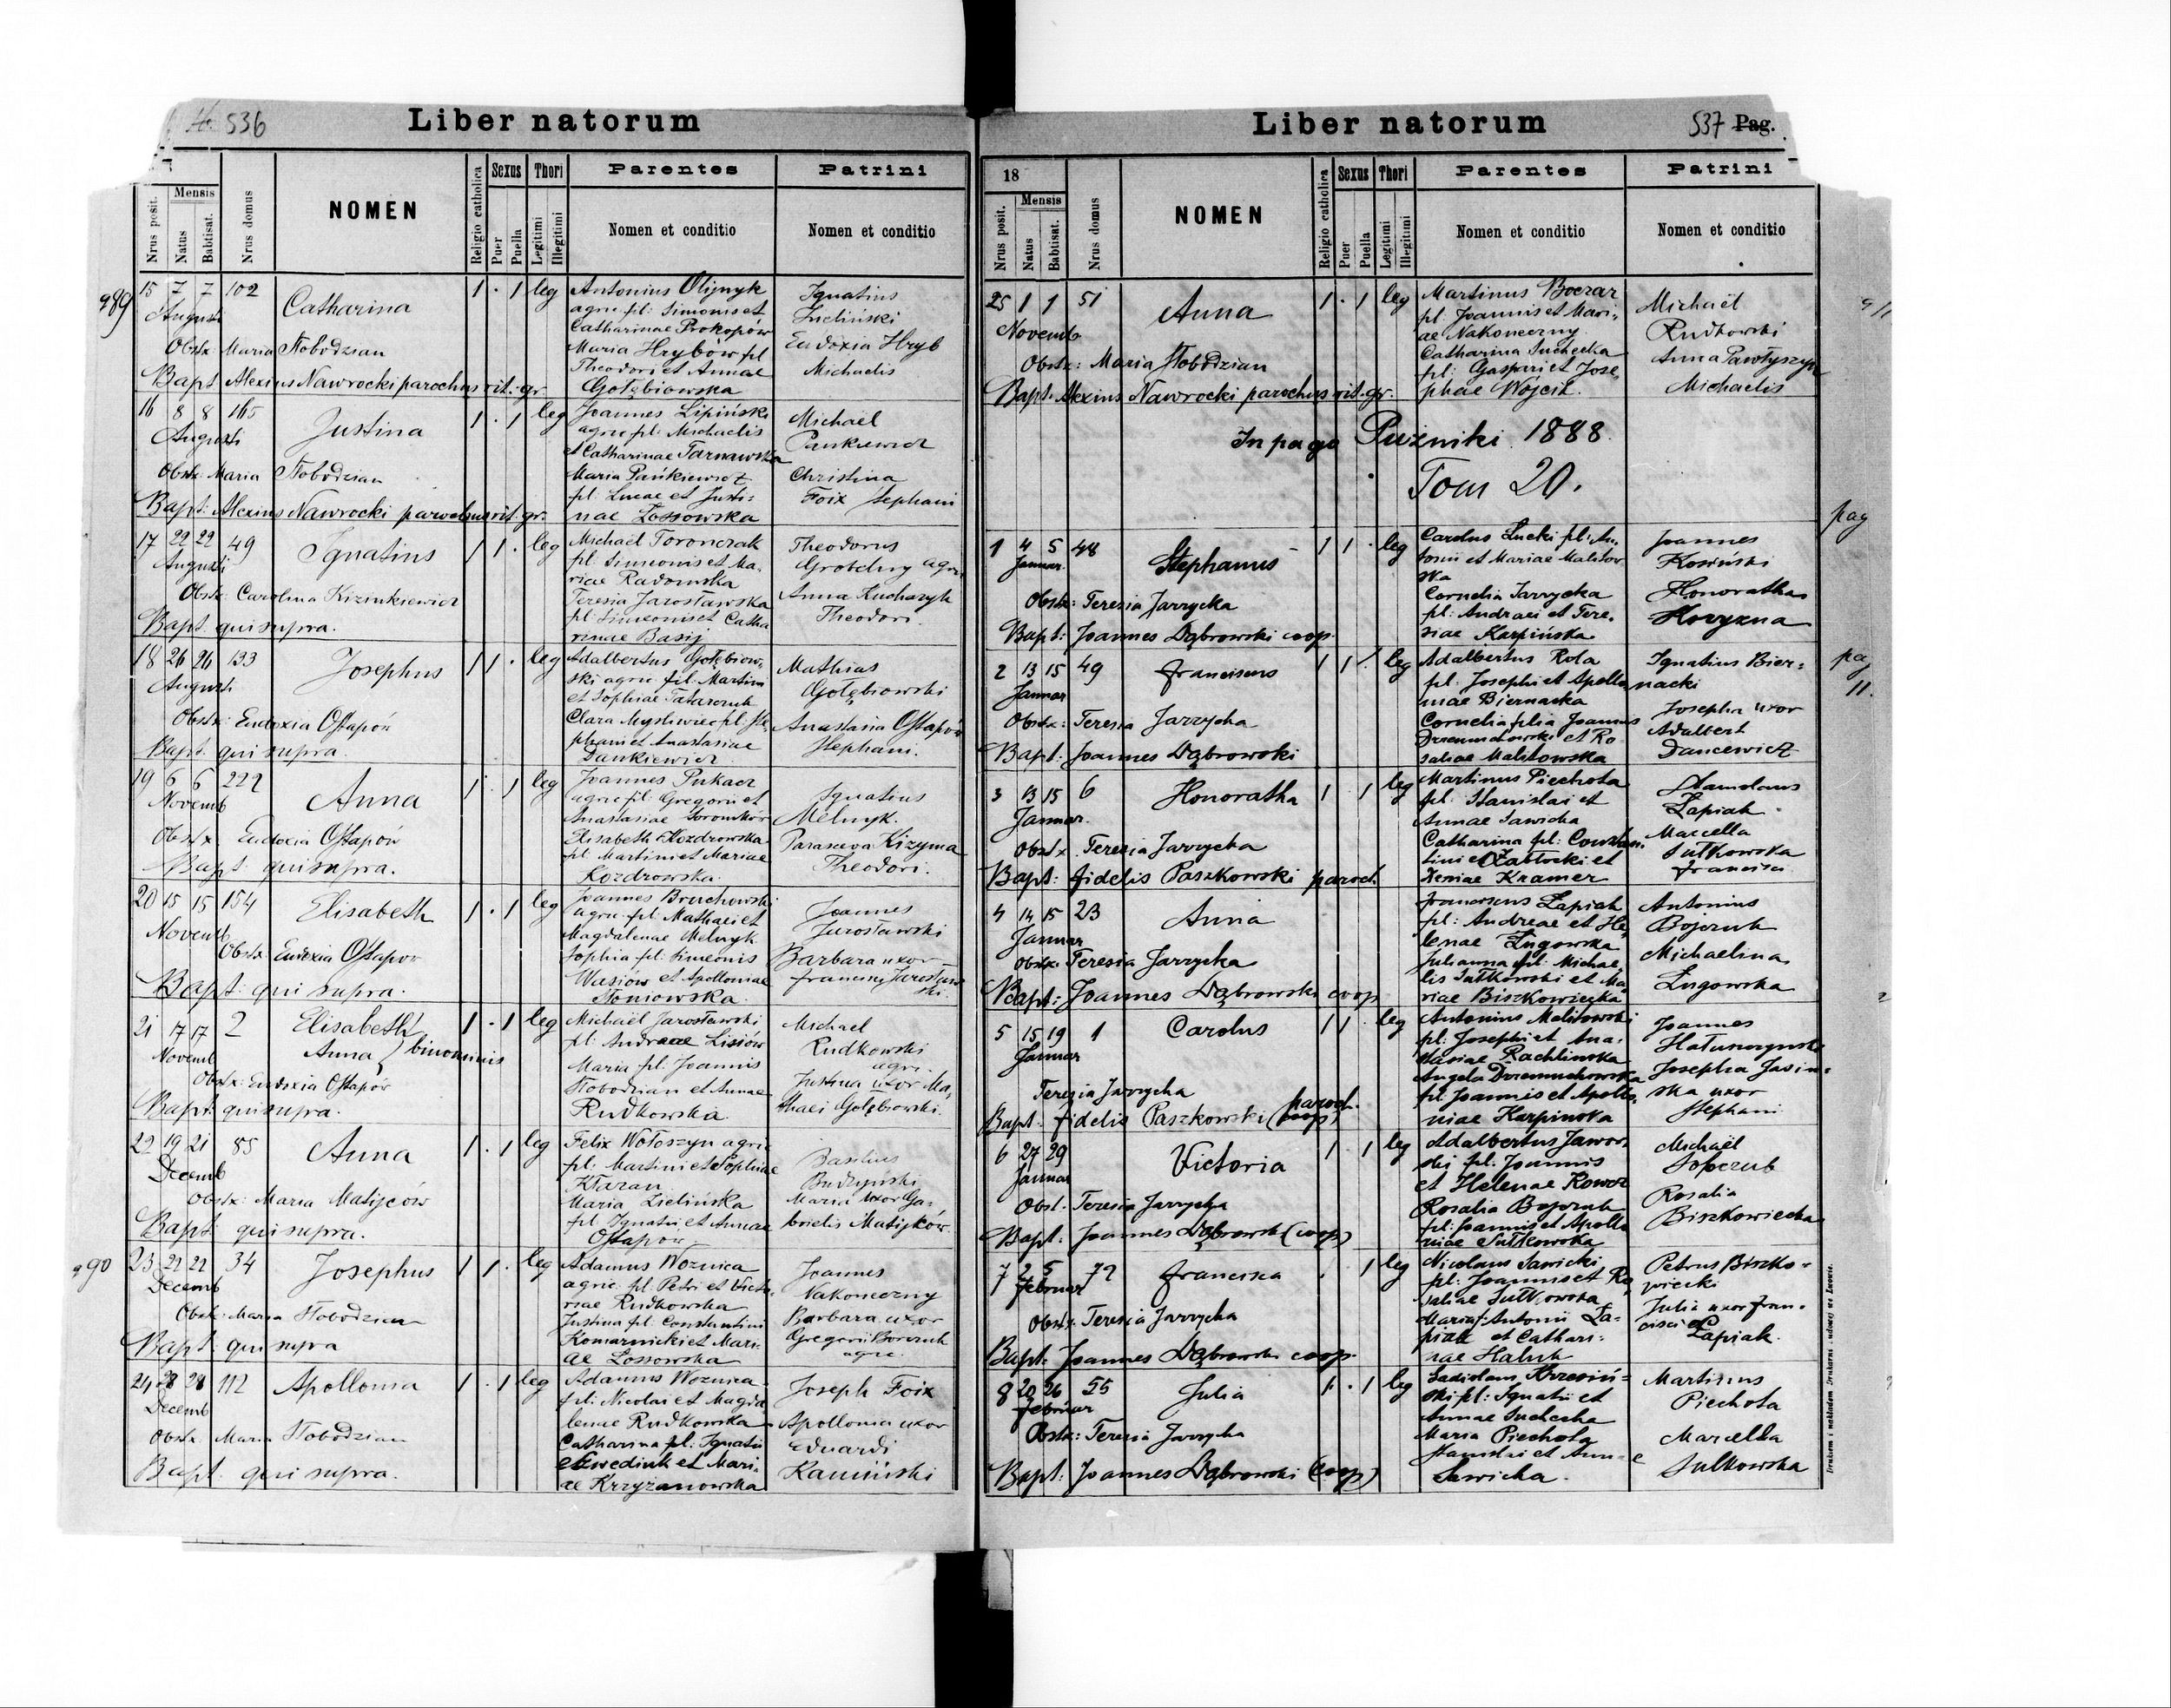 536
Liber natorum
Nrus posit.
Mensis
Natus
Babtisat.
Nrus domus
NOMEN
Religio catholica
Sexus
Puer
Puella
Thori
Legitimi
Illegitimi
Parentes
Nomen et conditio
Patrini
Nomen et conditio
989
15 7 7 102 Catharina 1 . 1 leg
Augusti
Obstx: Maria Słobodzian
Bapt. Alexius Nawrocki parochus rit. gr.
Antonius Olijnyk
agric fil: Simonis et
Catharinae Prokopów
Maria Hrybów fil
Theodori et Annae
Gołębiowska
Ignatius
Zieliński
Eudoxia Hryb
Michaelis
16 8 8 165 Justina 1 . 1 leg
Augusti
Obstx: Maria Słobodzian
Bapt: Alexius Nawrocki parochus rit. gr.
Joannes Lipiński
agric fil: Michaelis
et Catharinae Tarnawska
Maria Pańkiewicz
fil: Lucae et Justi-
nae Lossowska
Michaël
Pankiewicz
Christina
Foix Stephani
17 22 22 49 Ignatius 1 1 . leg
Augusti
Obstx: Carolina Kizinkiewicz
Bapt. qui supra.
Michaël Toronczak
fil: Simeonis et Ma-
riae Radomska
Teresia Jarosławska
fil Simeonis et Catha
rinae Basij
Theodorus
Grobelny agr.
Anna Kucharyk
Theodori.
18 26 26 133 Josephus 1 1 . leg
Augusti
Obstx: Eudoxia Ostapów
Bapt. qui supra.
Adalbertus Gołębiow-
ski agric fil. Martini
et Sophiae Tatarczuk
Clara Mysliwiec fil. Ste-
phani et Anastasiae
Dankiewicz
Mathias
Gołębiowski
Anastasia Ostapów
Stephani.
19 6 6 222 Anna 1 . 1 leg
Novemb
Obstx. Eudoxia Ostapów
Bapt. qui supra.
Joannes Pukacz
agric fil. Gregorii et
Elisabeth Kozdrowska
fil Martini et Mariae
Kozdrowska
Ignatius
Melnyk.
Parasceva Kizyma
Theodori.
20 15 15 154 Elisabeth 1 . 1 leg
Novemb
Obstx Eudoxia Ostapow
Bapt: qui supra.
Joannes Bruchowski
agric fil. Mathaei et
Magdalenae Melnyk
Sophia fil. Simeonis
Wasiów et Apolloniae
Soniowska
Joannes
Jarosławski
Barbara uxor
Francisci Jarosław
ski.
21 17 17 2 Elisabeth 1 . 1 leg
Novemb Anna } binominis
Obstx: Eudoxia Ostapów
Bapt: qui supra.
Michaël Jarosławski
fil. Andreae Lisiów
Maria fil. Joannis
Słobodzian et Annae
Rudkowska
Michael
Rudkowski
agr.
Justina uxor Ma-
thaei Gołębiowski.
22 19 21 85 Anna 1 . 1 leg
Decemb
Obstx: Maria Matijców
Bapt: qui supra.
Felix Wołoszyn agric
fil: Martini et Sophiae
Kłaran
Maria Zielińska
fil Ignatii et Annae
Ostapow
Basilius
Budzyński
Maria uxor Ga-
brielis Matijków
990
23 22 22 34 Josephus 1 1 . leg
Decemb
Obstx: Maria Słobodzian
Bapt: qui supra
Adamus Woznica
agric. fil. Petri et Victo-
riae Rudkowska
Justina fil. Constantini
Komarnicki et Mari-
ae Lossowska
Joannes
Nakoneczny
Barbara uxor
Gregorii Borczuk
agric.
24 28 28 112 Apollonia 1 . 1 leg
Decemb
Obstx. Maria Słobodzian
Bapt: qui supra.
Adamus Woznica
fil: Nicolai et Magda
lenae Rudkowska
Catharina fil: Ignatii
et Mari-
ae Krzyżanowska
Joseph Foix
Apollonia uxor
Eduardi
Kamiński
Liber natorum
537 Pag.
18
Nrus posit.
Mensis
Natus
Babtisat.
Nrus domus
NOMEN
Religio catholica
Sexus
Puer
Puella
Thori
Legitimi
Illegitimi
Parentes
Nomen et conditio
Patrini
Nomen et conditio
25 1 1 51 Anna 1 . 1 leg
Novemb
Obstx: Maria Słobodzian
Bapt. Alexius Nawrocki parochus rit. gr.
Martinus Boczar
fil. Joannis et Mari-
ae Nakoneczny
Catharina Suchecka
fil: Gaspari et Jose-
phae Wójcik.
Michaël
Rudkowski
Anna Pawłyszyn
Michaelis
In pago Puźniki 1888.
Tom 20.
pag
1 4 5 48 Stephanus 1 1 . leg
Januar.
Obstx: Teresia Jarzycka
Bapt: Joannes Dąbrowski coop.
Carolus Łucki fil: An-
tonii et Mariae Malitow
ska
Cornelia Jarzycka
fil: Andraei et Tere-
siae Karpińska
Joannes
Kosiński
Honoratha
Horyzna
2 13 15 49 Franciscus 1 1 . leg
Januar
Obstx: Teresia Jarzycka
Bapt: Joannes Dąbrowski
Adalbertus Rola
fil. Josephi et Apollo
niae Biernacka
Cornelia filia Joannis
Drzemuchowski et Ro
saliae Malitowska
Ignatius Bier-
nacki
Josepha uxor
Adalbert
Dancewicz
pag
11.
3 13 15 6 Honoratha 1 . 1 leg
Januar.
Obstx. Teresia Jarzycka
Bapt: Fidelis Paszkowski paroch
Martinus Piechota
fil. Stanislai et
Annae Sawicka
Catharina fil: Constan-
tini et Zabłocki et
Xeniae Kramer
Stanislaus
Łapiak
Marcella
Sutkowska
Francisci
4 14 15 23 Anna 1 leg
Januar
Obstx. Teresia Jarzycka
Bapt: Joannes Dąbrowski coop
Franciscus Łapiak
fil: Andreae et He-
lenae Ługowska
Julianna fil. Michae-
lis Sutkowski et Ma
riae Biszkowiecka
Antonius
Bojczuk
Michaelina
Ługowska
5 15 19 1 Carolus 1 1 . leg
Januar
Teresia Jarzycka
Bapt. Fidelis Paszkowski paroch.
Antonius Malitowski
fil: Josephi et Ana-
stasiae Rachlinska
Angela Drzemuchowska
fil Joannis et Apollo-
niae Karpinska
Joannes
Hałunczynski
Josepha Jasin-
ska uxor
Stephani
6 27 29 Victoria 1 . 1 leg
Januar
Obst. Teresia Jarzycka
Bapt. Joannes Dąbrowski (coop)
Adalbertus Jawor-
ski fil. Joannis
et Helenae Kowcz
Rosalia Bojczuk
fil: Joannis et Apollo
niae Sutkowska
Michaël
Sopczuk
Rosalia
Biszkowiecka
7 2 5 72 Francisca . 1 leg
Februar
Obstx: Teresia Jarzycka
Bapt. Joannes Dąbrowski coop.
Nicolaus Sawicki
fil: Joannis et Ro
saliae Sutkowska
Maria f. Antonii Ła-
piak et Cathari-
nae Haluk
Petrus Biszko-
wiecki
Julia uxor Fran-
cisci Łapiak.
8 20 26 55 Julia 1 . 1 leg
Februar
Obstx: Teresia Jarzycka
Bapt: Joannes Dąbrowski (coop)
Ladislaus Krzesiń-
ski fil: Ignatii et
Annae Suchecka
Maria Piechota
Stanislai et Annae
Sawicka.
Martinus
Piechota
Marcella
Sulkowska